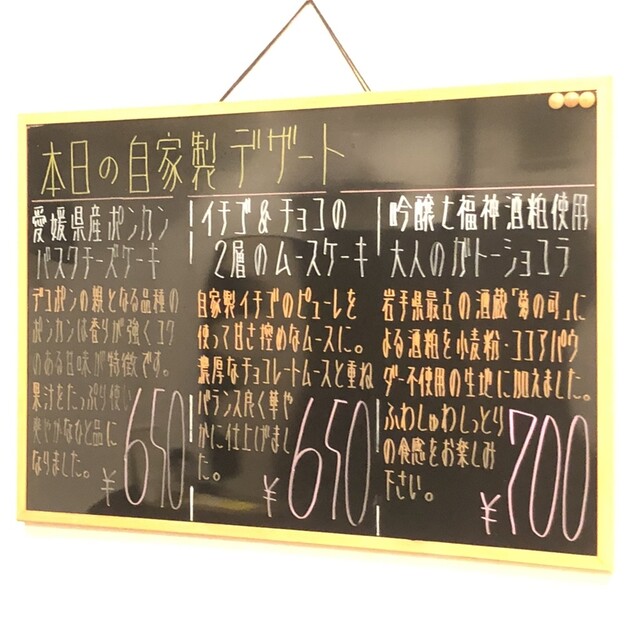 本日の自家製デザート
愛媛県産ポンカン
バスクチーズケーキ
デコポンの親となる品種の
ポンカンは香りが強くコク
のある甘味が特徴です。
果汁をたっぷり使い
爽やかなひと品に
なりました。
¥650
イチゴ&チョコの
2層のムースケーキ
自家製イチゴのピューレを
使って甘さ控めなムースに。
濃厚なチョコレートムースと重ね
バランス良く華や
かに仕上げまし
た。
¥650
吟醸七福神酒粕使用
大人のガトーショコラ
岩手県最古の酒蔵「菊の司」に
よる酒粕を小麦粉・ココアパウ
ダー不使用の生地に加えました。
ふわしゅわしっとり
の食感をお楽しみ
下さい。
¥700